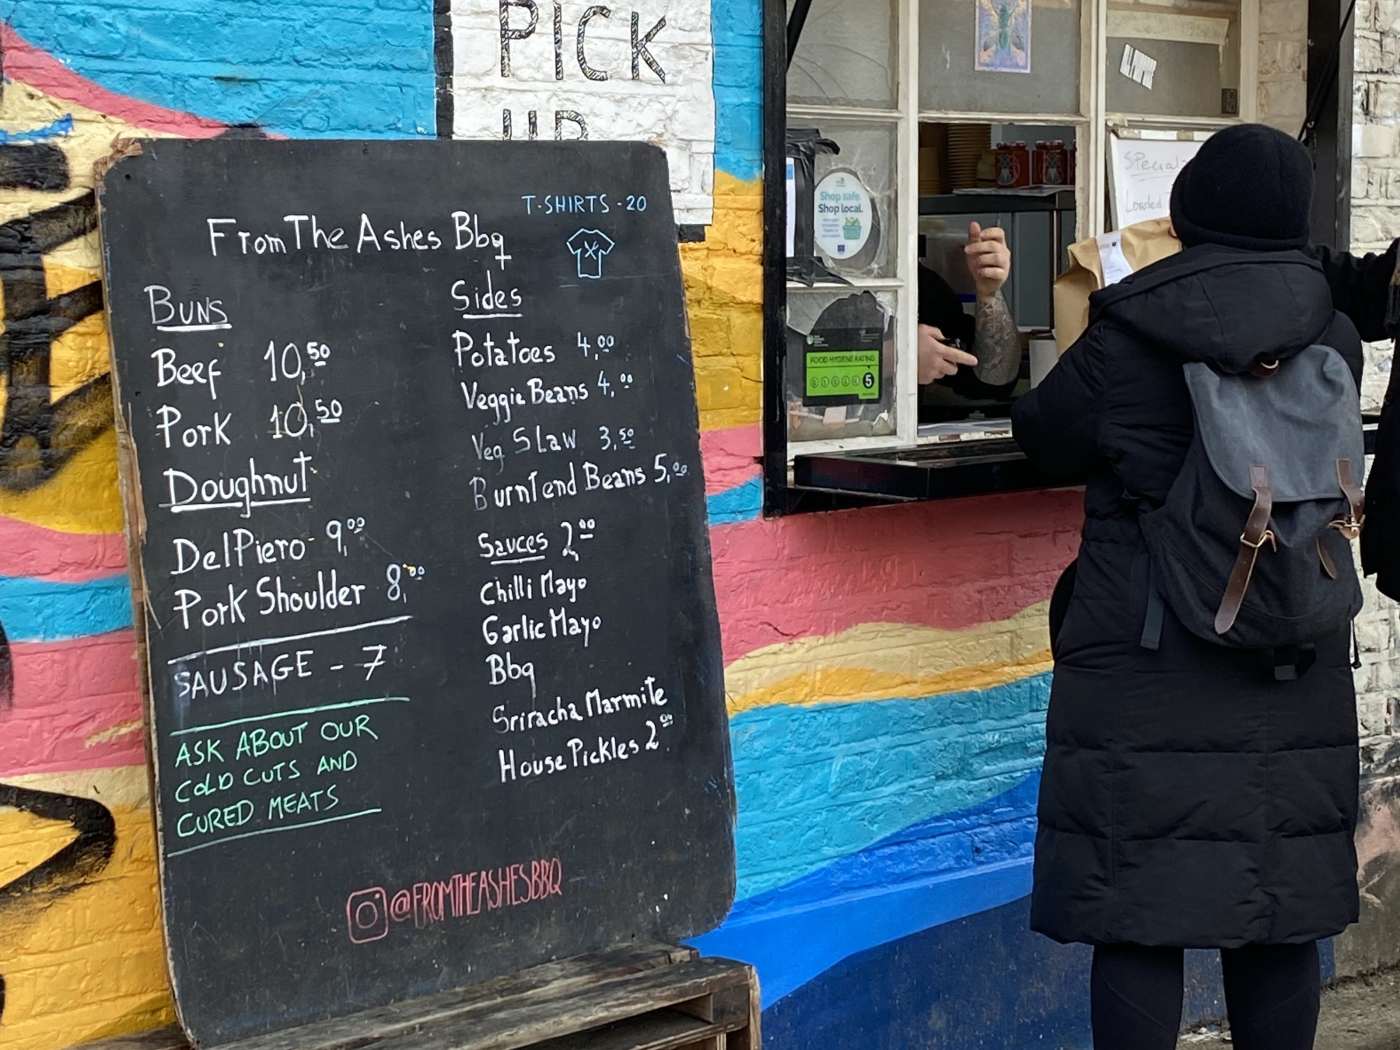 PICK
UP
T-SHIRTS - 20
From The Ashes Bbq
Buns
Beef 10,50
Pork 10,50
Doughnut
DelPiero 9,00
Pork Shoulder 8,00
SAUSAGE - 7
ASK ABOUT OUR
COLD CUTS AND
CURED MEATS
Sides
Potatoes 4,00
Veggie Beans 4,00
Veg Slaw 3,50
Burnt end Beans 5,00
Sauces 2,00
Chilli Mayo
Garlic Mayo
Bbq
Sriracha Marmite
House Pickles 2,00
@FROMTHEASHESBBQ
Shop safe.
Shop local.
FOOD HYGIENE RATING
5
OLYMPIC
Specials
Loaded